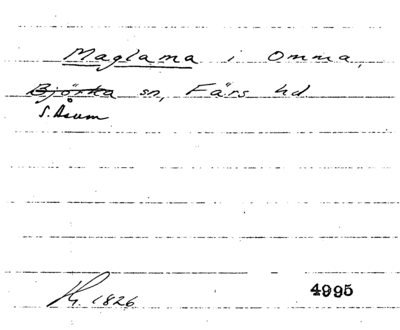 Maglama i Omma,
Björka sn, Färs hd
S. Åsum
1826
4995